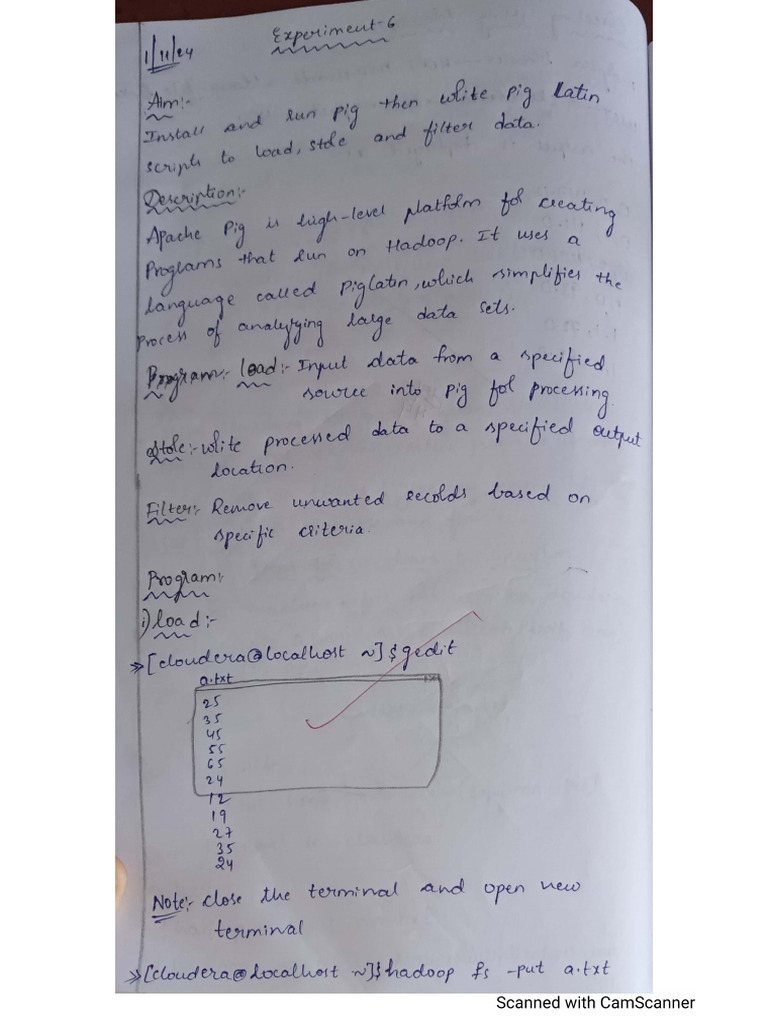 Experiment-6
1/11/24
Aim:-
Install and run pig then write pig Latin
scripts to load, store and filter data.
Description:-
Apache Pig is high-level platform for creating
Programs that run on Hadoop. It uses a
language called Piglatin, which simplifies the
process of analyzing large data sets.
Program:- load:- Input data from a specified
source into pig for processing.
Store:- write processed data to a specified output
location.
Filter:- Remove unwanted records based on
specific criteria.
Program:-
i) load:-
>> [cloudera@localhost ~]$ gedit
a.txt
25
35
45
55
65
24
12
19
27
35
24
Note:- close the terminal and open new
terminal
>> [cloudera@localhost ~]$ hadoop fs -put a.txt
Scanned with CamScanner